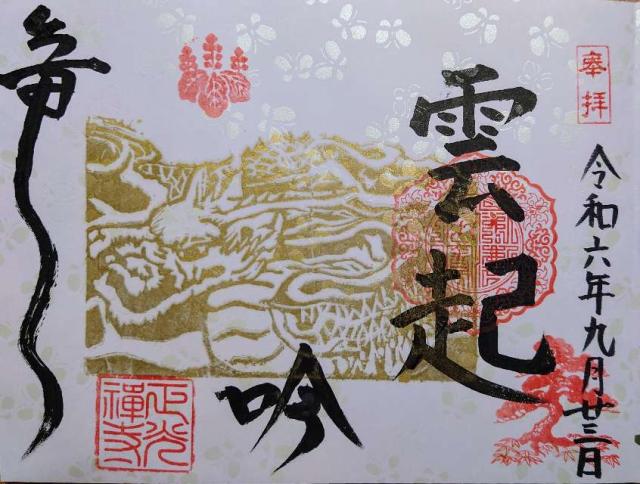 奉拝
令和六年九月廿三日
雲起
竜吟
正光禅寺